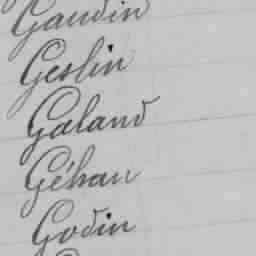 Gaudin
Geslin
Galand
Géhan
Godin